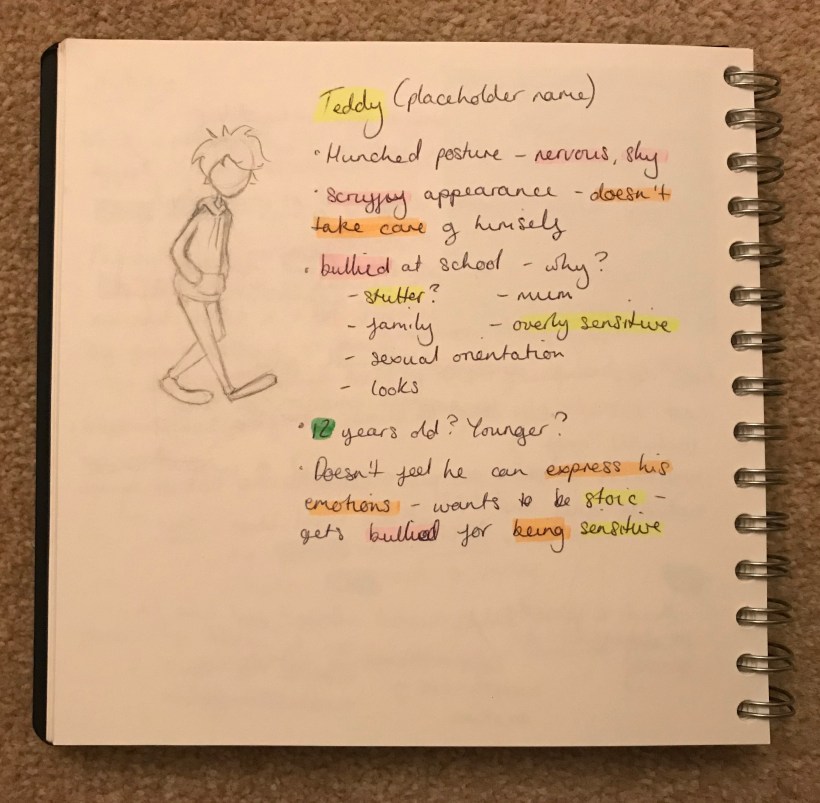 Teddy (placeholder name)
· Hunched posture - nervous, shy
· scruffy appearance - doesn't
take care of himself
· bullied at school - why?
- stutter? - mum
- family - overly sensitive
- sexual orientation
- looks
· 12 years old? Younger?
· Doesn't feel he can express his
emotions - wants to be stoic -
gets bullied for being sensitive